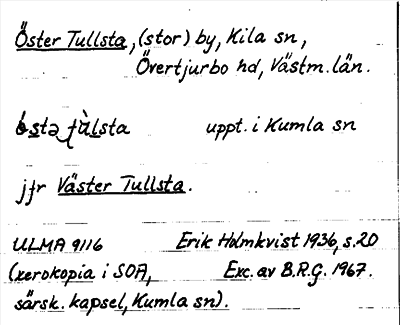 Öster Tullsta, (stor) by, Kila sn,
Övertjurbo hd, Västm. län.
uppt. i Kumla sn
jfr Väster Tullsta.
ULMA 9116 Erik Holmkvist 1936, s. 20
(xerokopia i SOA, Exc. av B.R.G. 1967.
särsk. kapsel, Kumla sn).